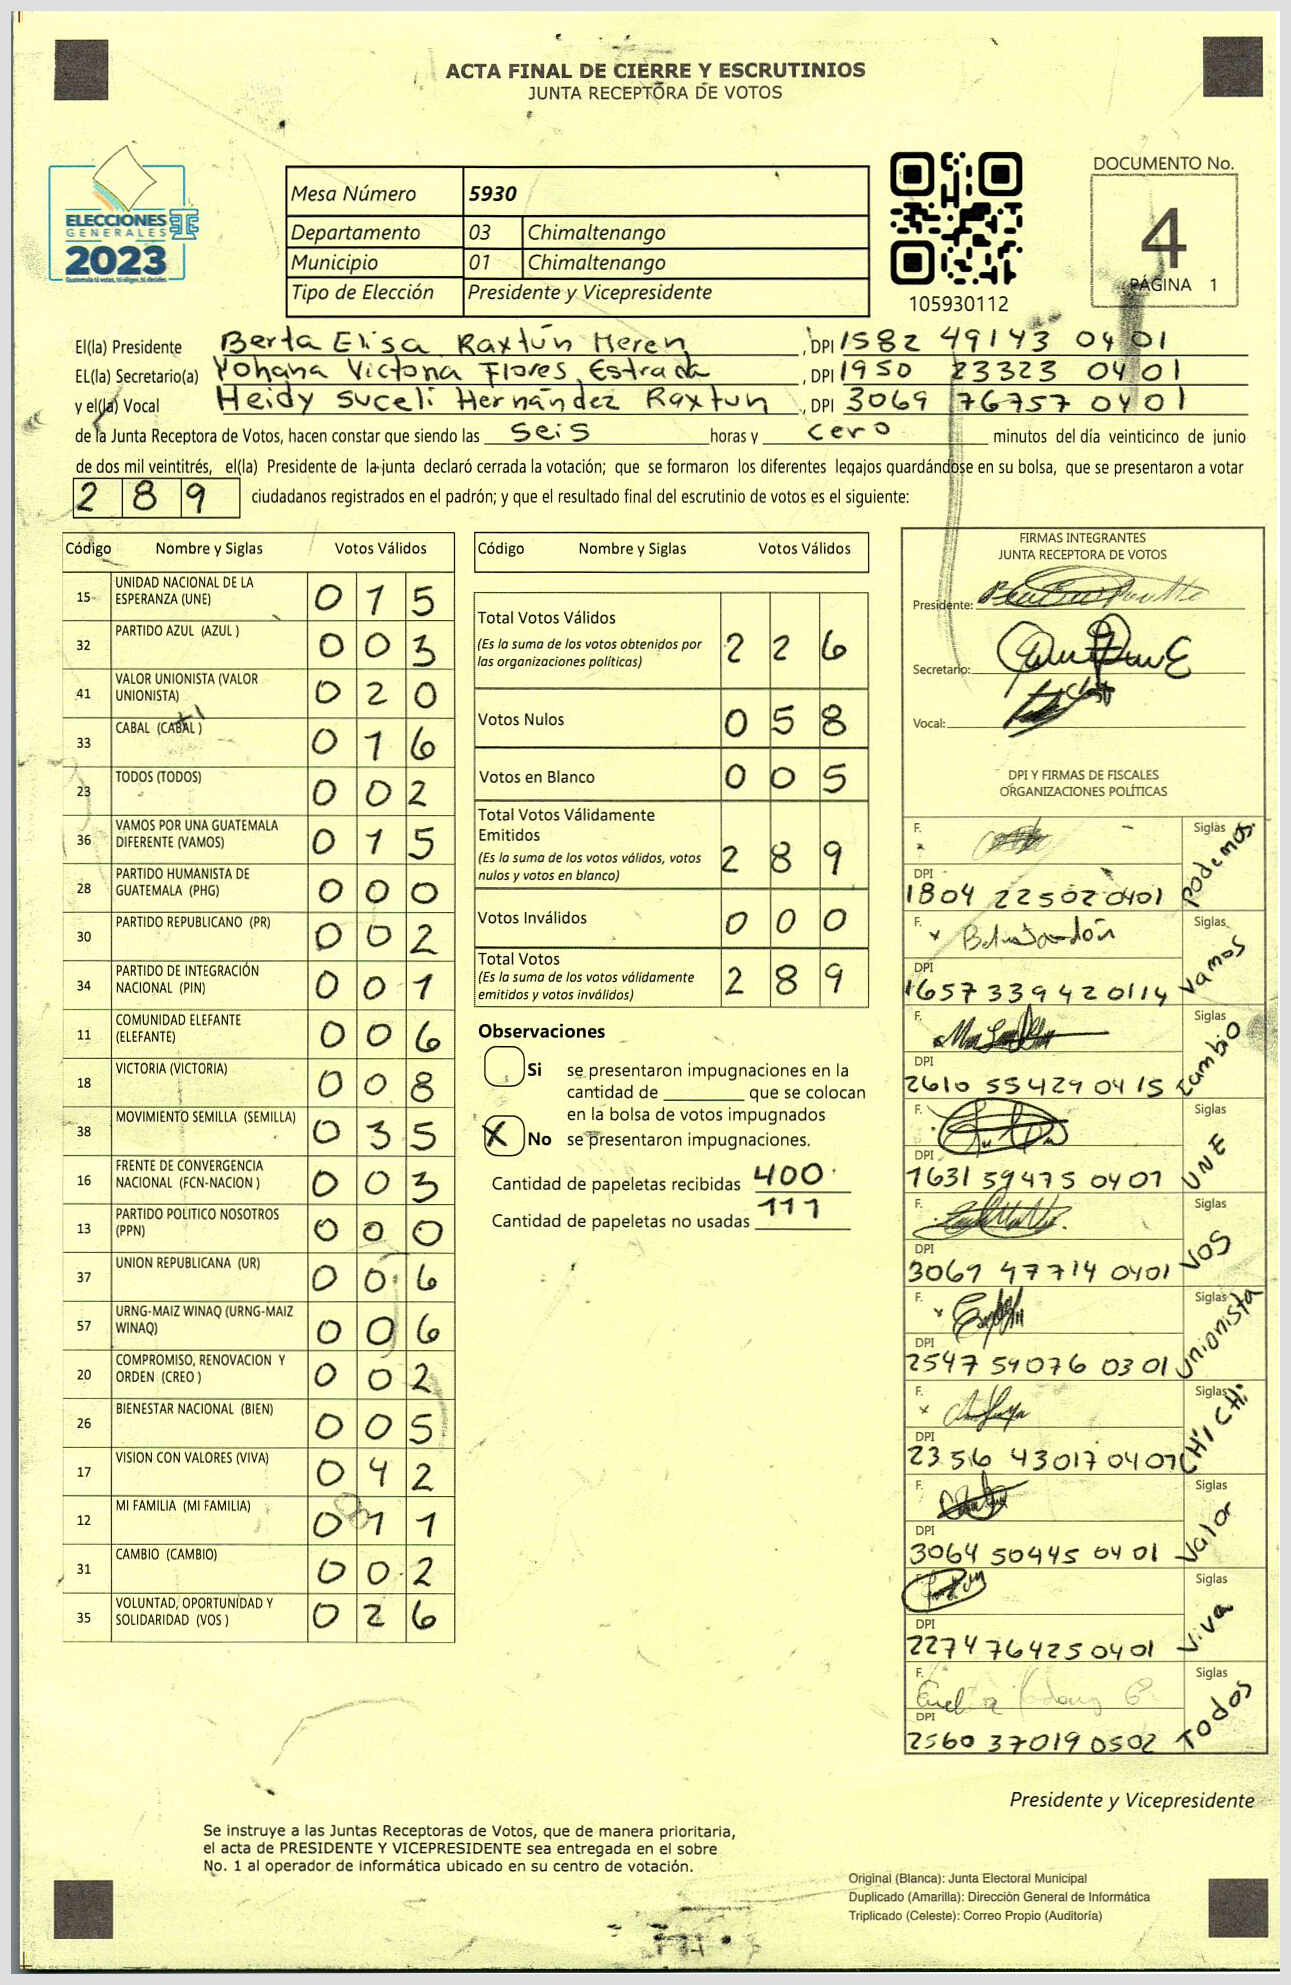 ACTA FINAL DE CIERRE Y ESCRUTINIOS
JUNTA RECEPTORA DE VOTOS
ELECCIONES
GENERALES
2023
Guatemala tú votas, tú eliges, tú decides
Mesa Número 5930
Departamento 03 Chimaltenango
Municipio 01 Chimaltenango
Tipo de Elección Presidente y Vicepresidente
105930112
DOCUMENTO No.
4
PÁGINA 1
El(la) Presidente Berta Elisa Raxtún Meren, DPI 1582 49143 0401
EL(la) Secretario(a) Yohana Victoria Flores Estrada, DPI 1950 23323 0401
y el(la) Vocal Heidy Suceli Hernández Raxtun, DPI 3069 76757 0401
de la Junta Receptora de Votos, hacen constar que siendo las seis horas y cero minutos del día veinticinco de junio
de dos mil veintitrés, el(la) Presidente de la junta declaró cerrada la votación; que se formaron los diferentes legajos guardándose en su bolsa, que se presentaron a votar
289 ciudadanos registrados en el padrón; y que el resultado final del escrutinio de votos es el siguiente:
Código Nombre y Siglas Votos Válidos
15 UNIDAD NACIONAL DE LA ESPERANZA (UNE) 015
32 PARTIDO AZUL (AZUL ) 003
41 VALOR UNIONISTA (VALOR UNIONISTA) 020
33 CABAL (CABAL ) 016
23 TODOS (TODOS) 002
36 VAMOS POR UNA GUATEMALA DIFERENTE (VAMOS) 015
28 PARTIDO HUMANISTA DE GUATEMALA (PHG) 000
30 PARTIDO REPUBLICANO (PR) 002
34 PARTIDO DE INTEGRACIÓN NACIONAL (PIN) 001
11 COMUNIDAD ELEFANTE (ELEFANTE) 006
18 VICTORIA (VICTORIA) 008
38 MOVIMIENTO SEMILLA (SEMILLA) 035
16 FRENTE DE CONVERGENCIA NACIONAL (FCN-NACION ) 003
13 PARTIDO POLITICO NOSOTROS (PPN) 000
37 UNION REPUBLICANA (UR) 006
57 URNG-MAIZ WINAQ (URNG-MAIZ WINAQ) 006
20 COMPROMISO, RENOVACION Y ORDEN (CREO ) 002
26 BIENESTAR NACIONAL (BIEN) 005
17 VISION CON VALORES (VIVA) 042
12 MI FAMILIA (MI FAMILIA) 011
31 CAMBIO (CAMBIO) 002
35 VOLUNTAD, OPORTUNIDAD Y SOLIDARIDAD (VOS ) 026
Código Nombre y Siglas Votos Válidos
Total Votos Válidos 226
(Es la suma de los votos obtenidos por
las organizaciones políticas)
Votos Nulos 058
Votos en Blanco 005
Total Votos Válidamente
Emitidos 289
(Es la suma de los votos válidos, votos
nulos y votos en blanco)
Votos Inválidos 000
Total Votos 289
(Es la suma de los votos válidamente
emitidos y votos inválidos)
Observaciones
Si se presentaron impugnaciones en la
cantidad de ________ que se colocan
en la bolsa de votos impugnados
X No se presentaron impugnaciones.
Cantidad de papeletas recibidas 400
Cantidad de papeletas no usadas 111
FIRMAS INTEGRANTES
JUNTA RECEPTORA DE VOTOS
Presidente:
Secretario:
Vocal:
DPI Y FIRMAS DE FISCALES
ORGANIZACIONES POLÍTICAS
F. Siglas Podemos
DPI 1804 22502 0401
F. Siglas Vamos
DPI 1657 33942 0114
F. Siglas Cambio
DPI 2610 55429 0415
F. Siglas UNE
DPI 1631 59475 0401
F. Siglas VOS
DPI 3069 47714 0401
F. Siglas Unionista
DPI 2547 59076 0301
F. Siglas CHICHI
DPI 2356 43017 0407
F. Siglas Valor
DPI 3064 50445 0401
F. Siglas Viva
DPI 2274 76425 0401
F. Siglas Todos
DPI 2560 37019 0502
Presidente y Vicepresidente
Se instruye a las Juntas Receptoras de Votos, que de manera prioritaria,
el acta de PRESIDENTE Y VICEPRESIDENTE sea entregada en el sobre
No. 1 al operador de informática ubicado en su centro de votación.
Original (Blanca): Junta Electoral Municipal
Duplicado (Amarilla): Dirección General de Informática
Triplicado (Celeste): Correo Propio (Auditoría)